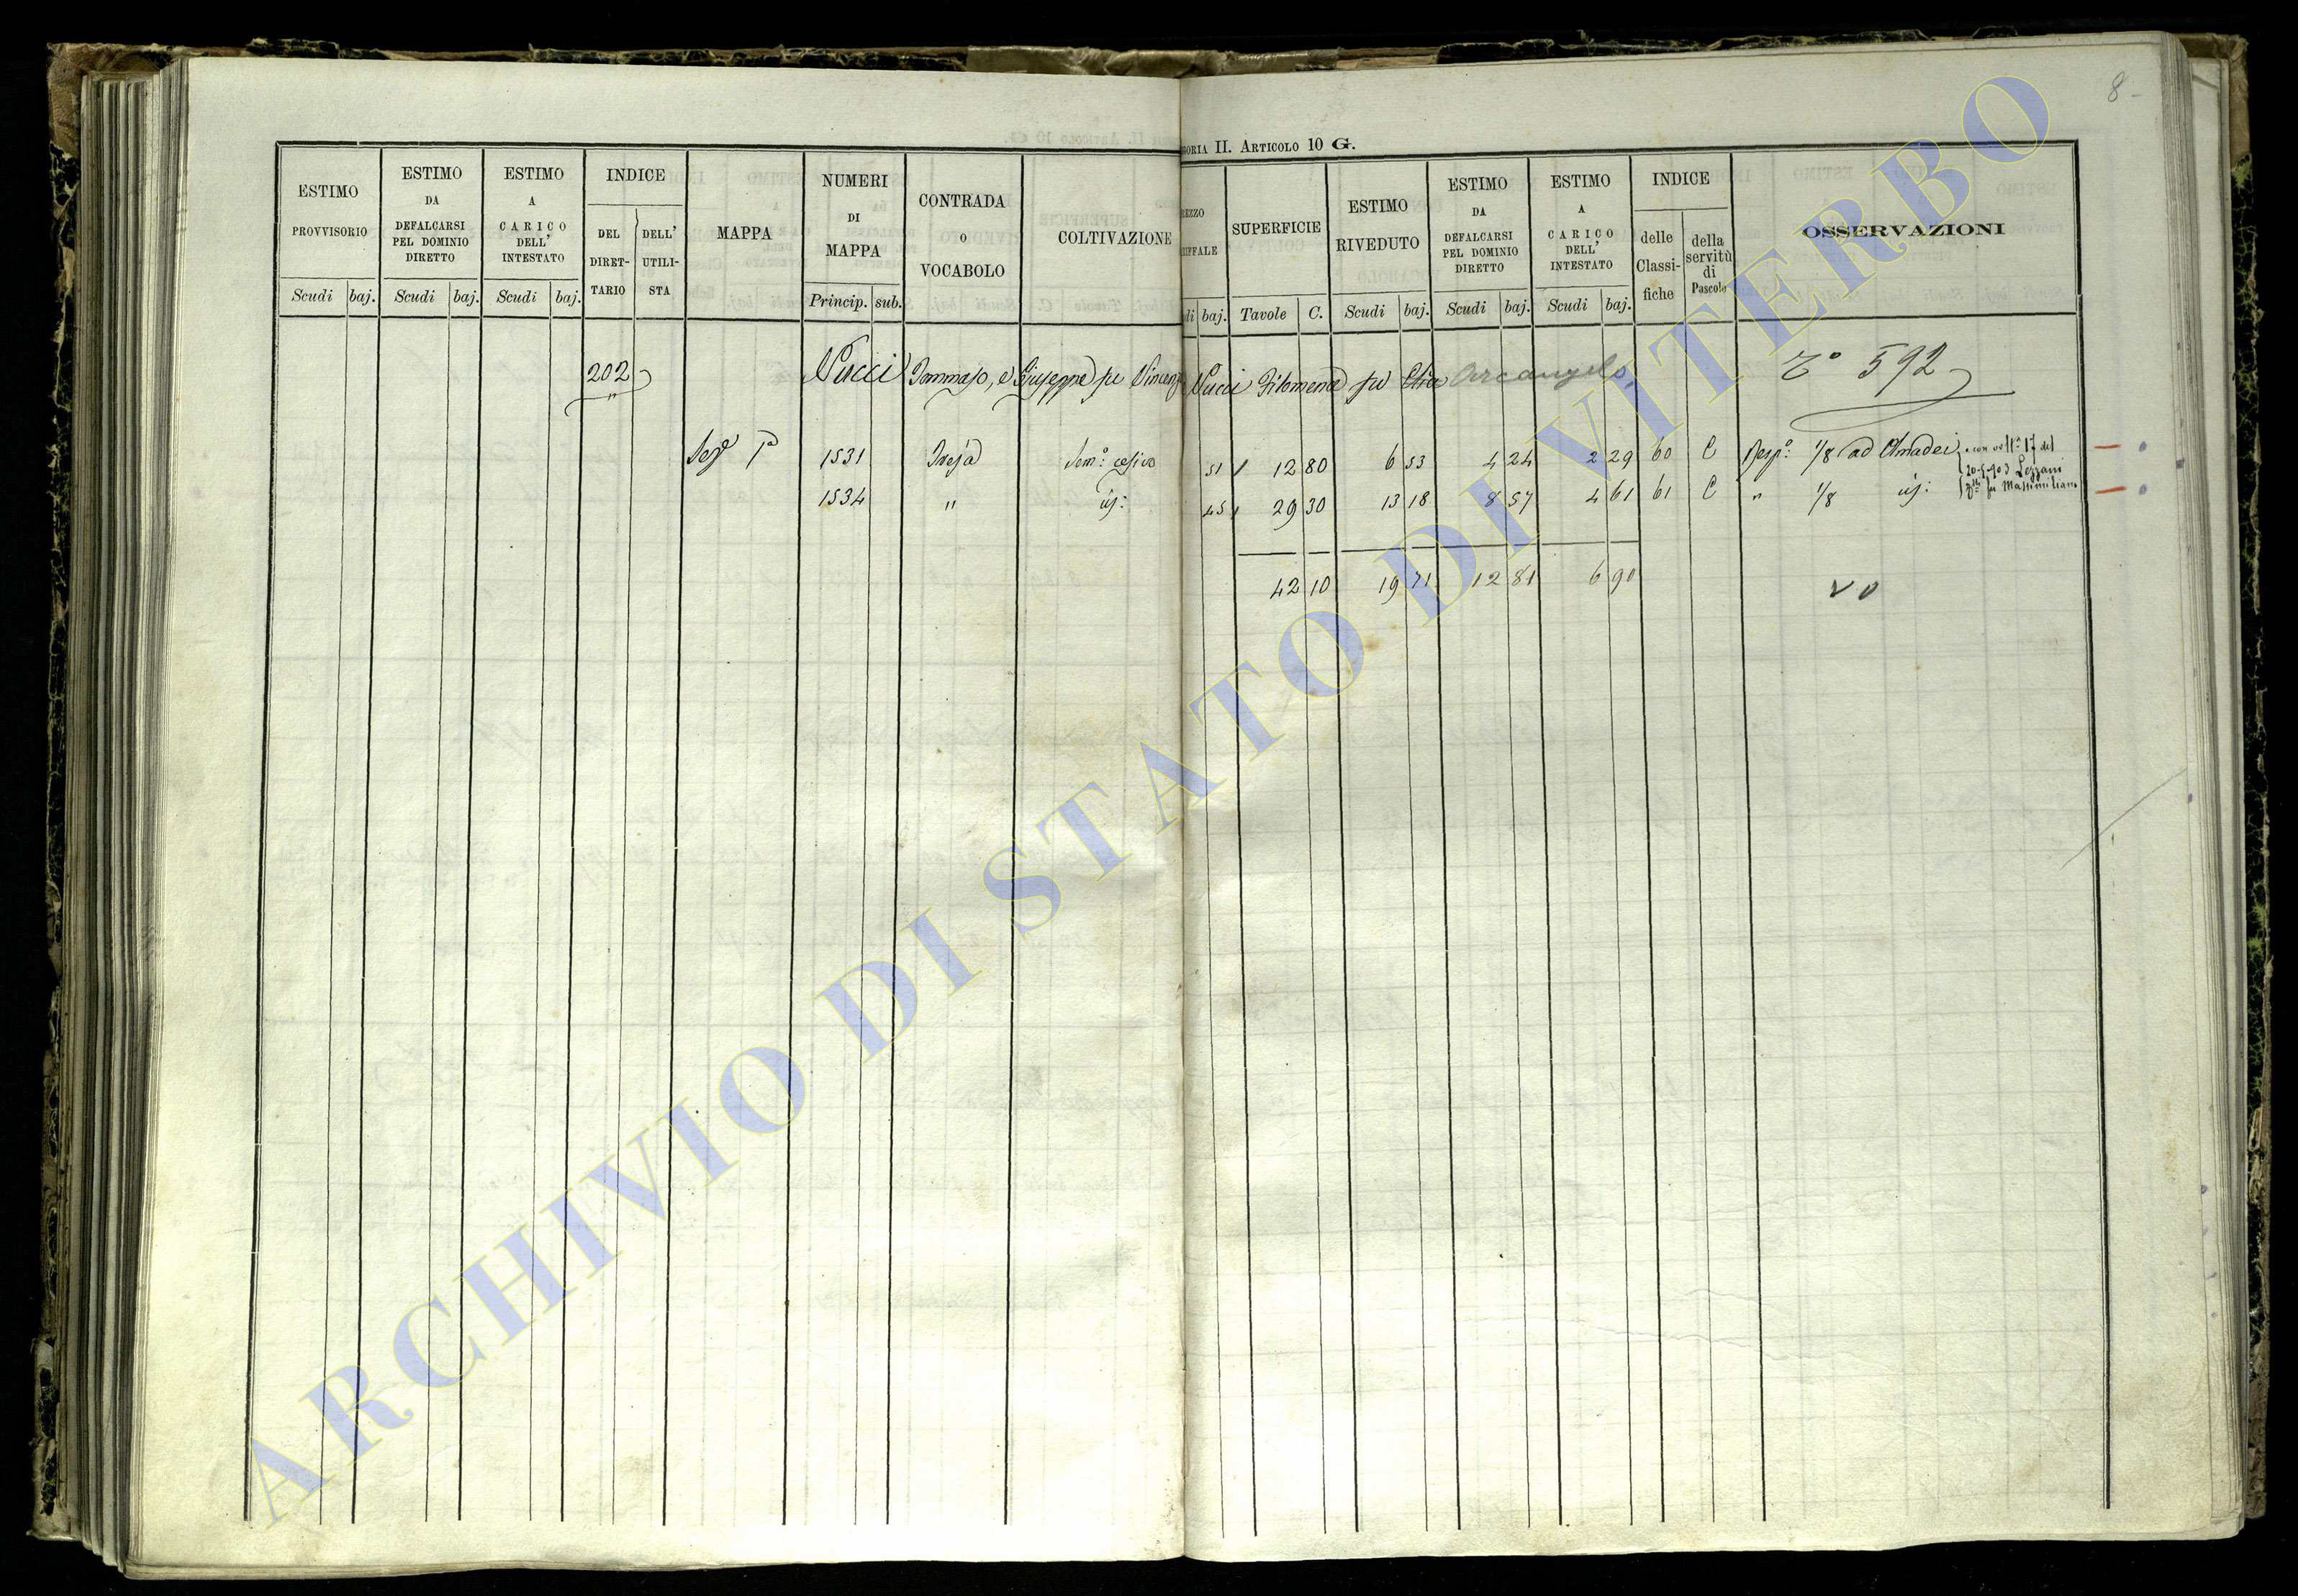 8-
GORIA II. ARTICOLO 10 G.
ESTIMO PROVVISORIO
ESTIMO DA DEFALCARSI PEL DOMINIO DIRETTO
ESTIMO A CARICO DELL' INTESTATO
INDICE
DEL DIRETTARIO
DELL' UTILISTA
MAPPA
NUMERI DI MAPPA
CONTRADA O VOCABOLO
COLTIVAZIONE
EZZO RIFFALE
SUPERFICIE
ESTIMO RIVEDUTO
ESTIMO DA DEFALCARSI PEL DOMINIO DIRETTO
ESTIMO A CARICO DELL' INTESTATO
INDICE
delle Classifiche
della servitù di Pascolo
OSSERVAZIONI
Scudi baj. Scudi baj. Scudi baj. Princip. sub. di baj. Tavole C. Scudi baj. Scudi baj. Scudi baj.
202 Nucci Tommaso, e Giuseppe fu Vincenzo Nucci Filomena fu Elia Arcangelo 592
1531 51 12 80 6 53 4 24 2 29 60 C Risp: 1/8 ad Amadei
1534 " 45 29 30 13 18 8 57 4 61 61 C " 1/8
fu Massimiliano
42 10 19 71 12 81 6 90
ARCHIVIO DI STATO DI VITERBO